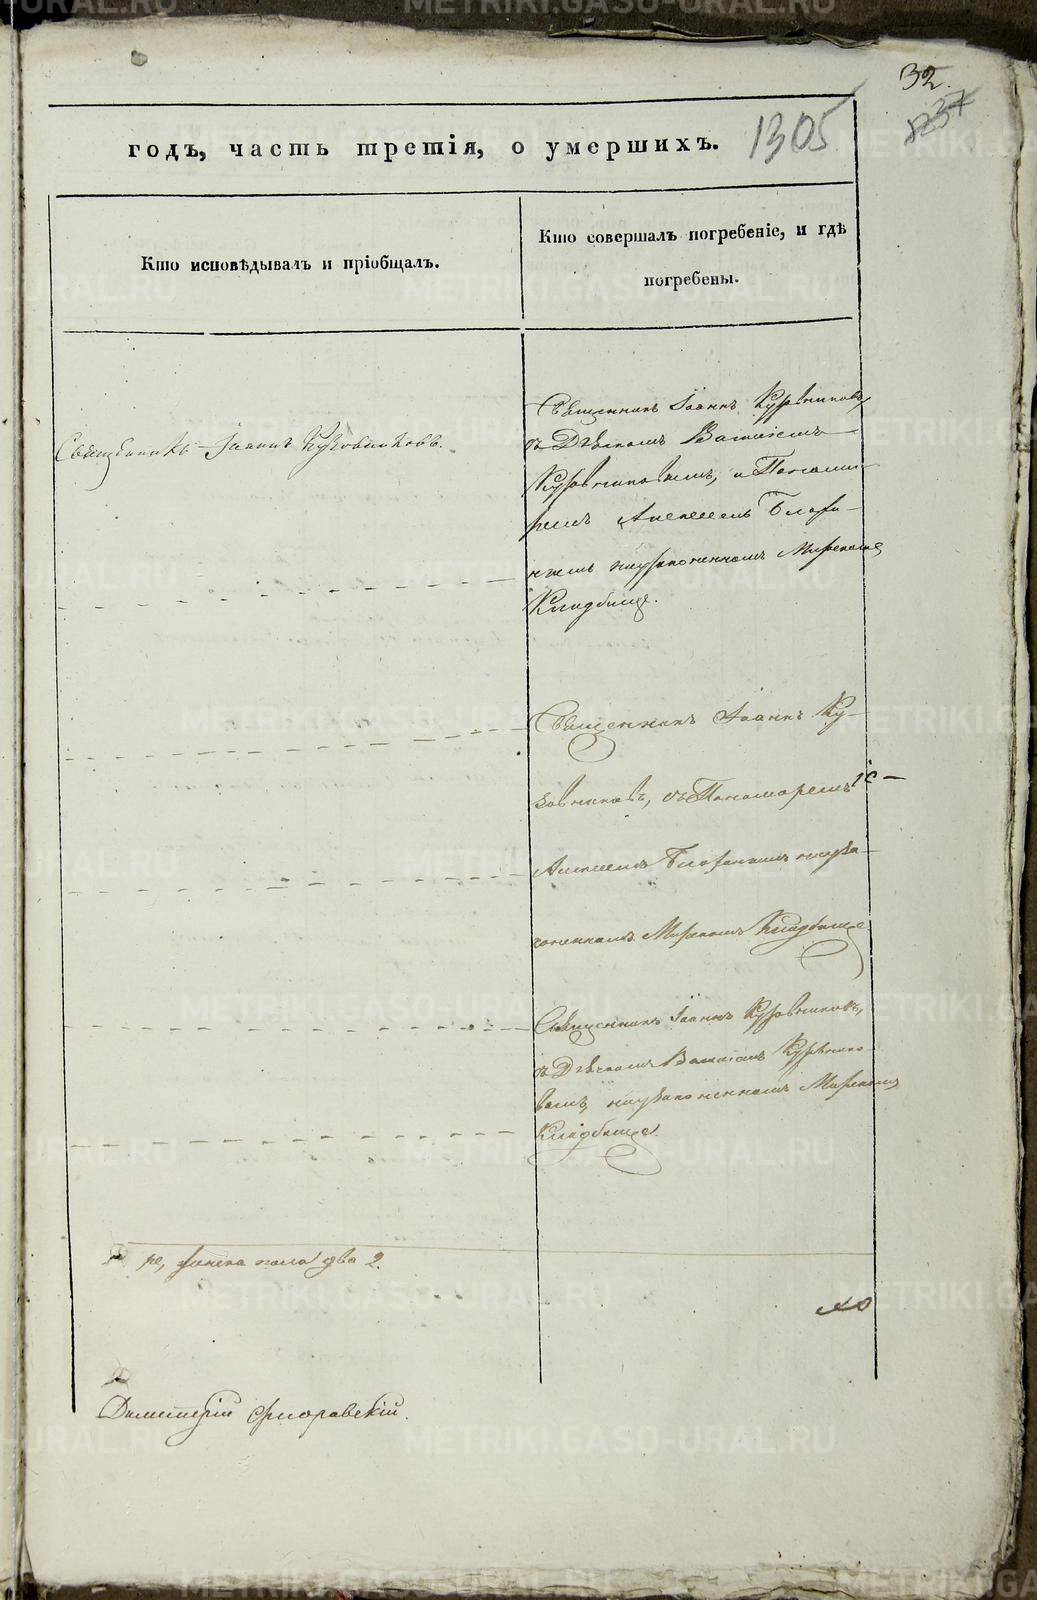 32.
837
годъ, часть третія, о умершихъ.
1305
Кто исповѣдывалъ и пріобщалъ.
Кто совершалъ погребеніе, и гдѣ
погребены.
Священникъ Іоаннъ Кузовниковъ
съ Дьячкомъ
Священникъ Іоаннъ Кузовниковъ.
Кузовниковымъ, и Понама-
ремъ Алексеемъ
науказоненномъ Мирскомъ
Кладбище.
Священникъ Іоаннъ Ку-
зовниковъ, съ Пономаремъ
Алексеемъ науза-
коненномъ Мирскомъ Кладбище
Священникъ Іоаннъ Кузовниковъ,
съ Дьячкомъ Кузовнико
вымъ, наузаконенномъ Мирскомъ
Кладбище.
ре, женска пола два 2.
Димитрій
METRIKI.GASO-URAL.RU